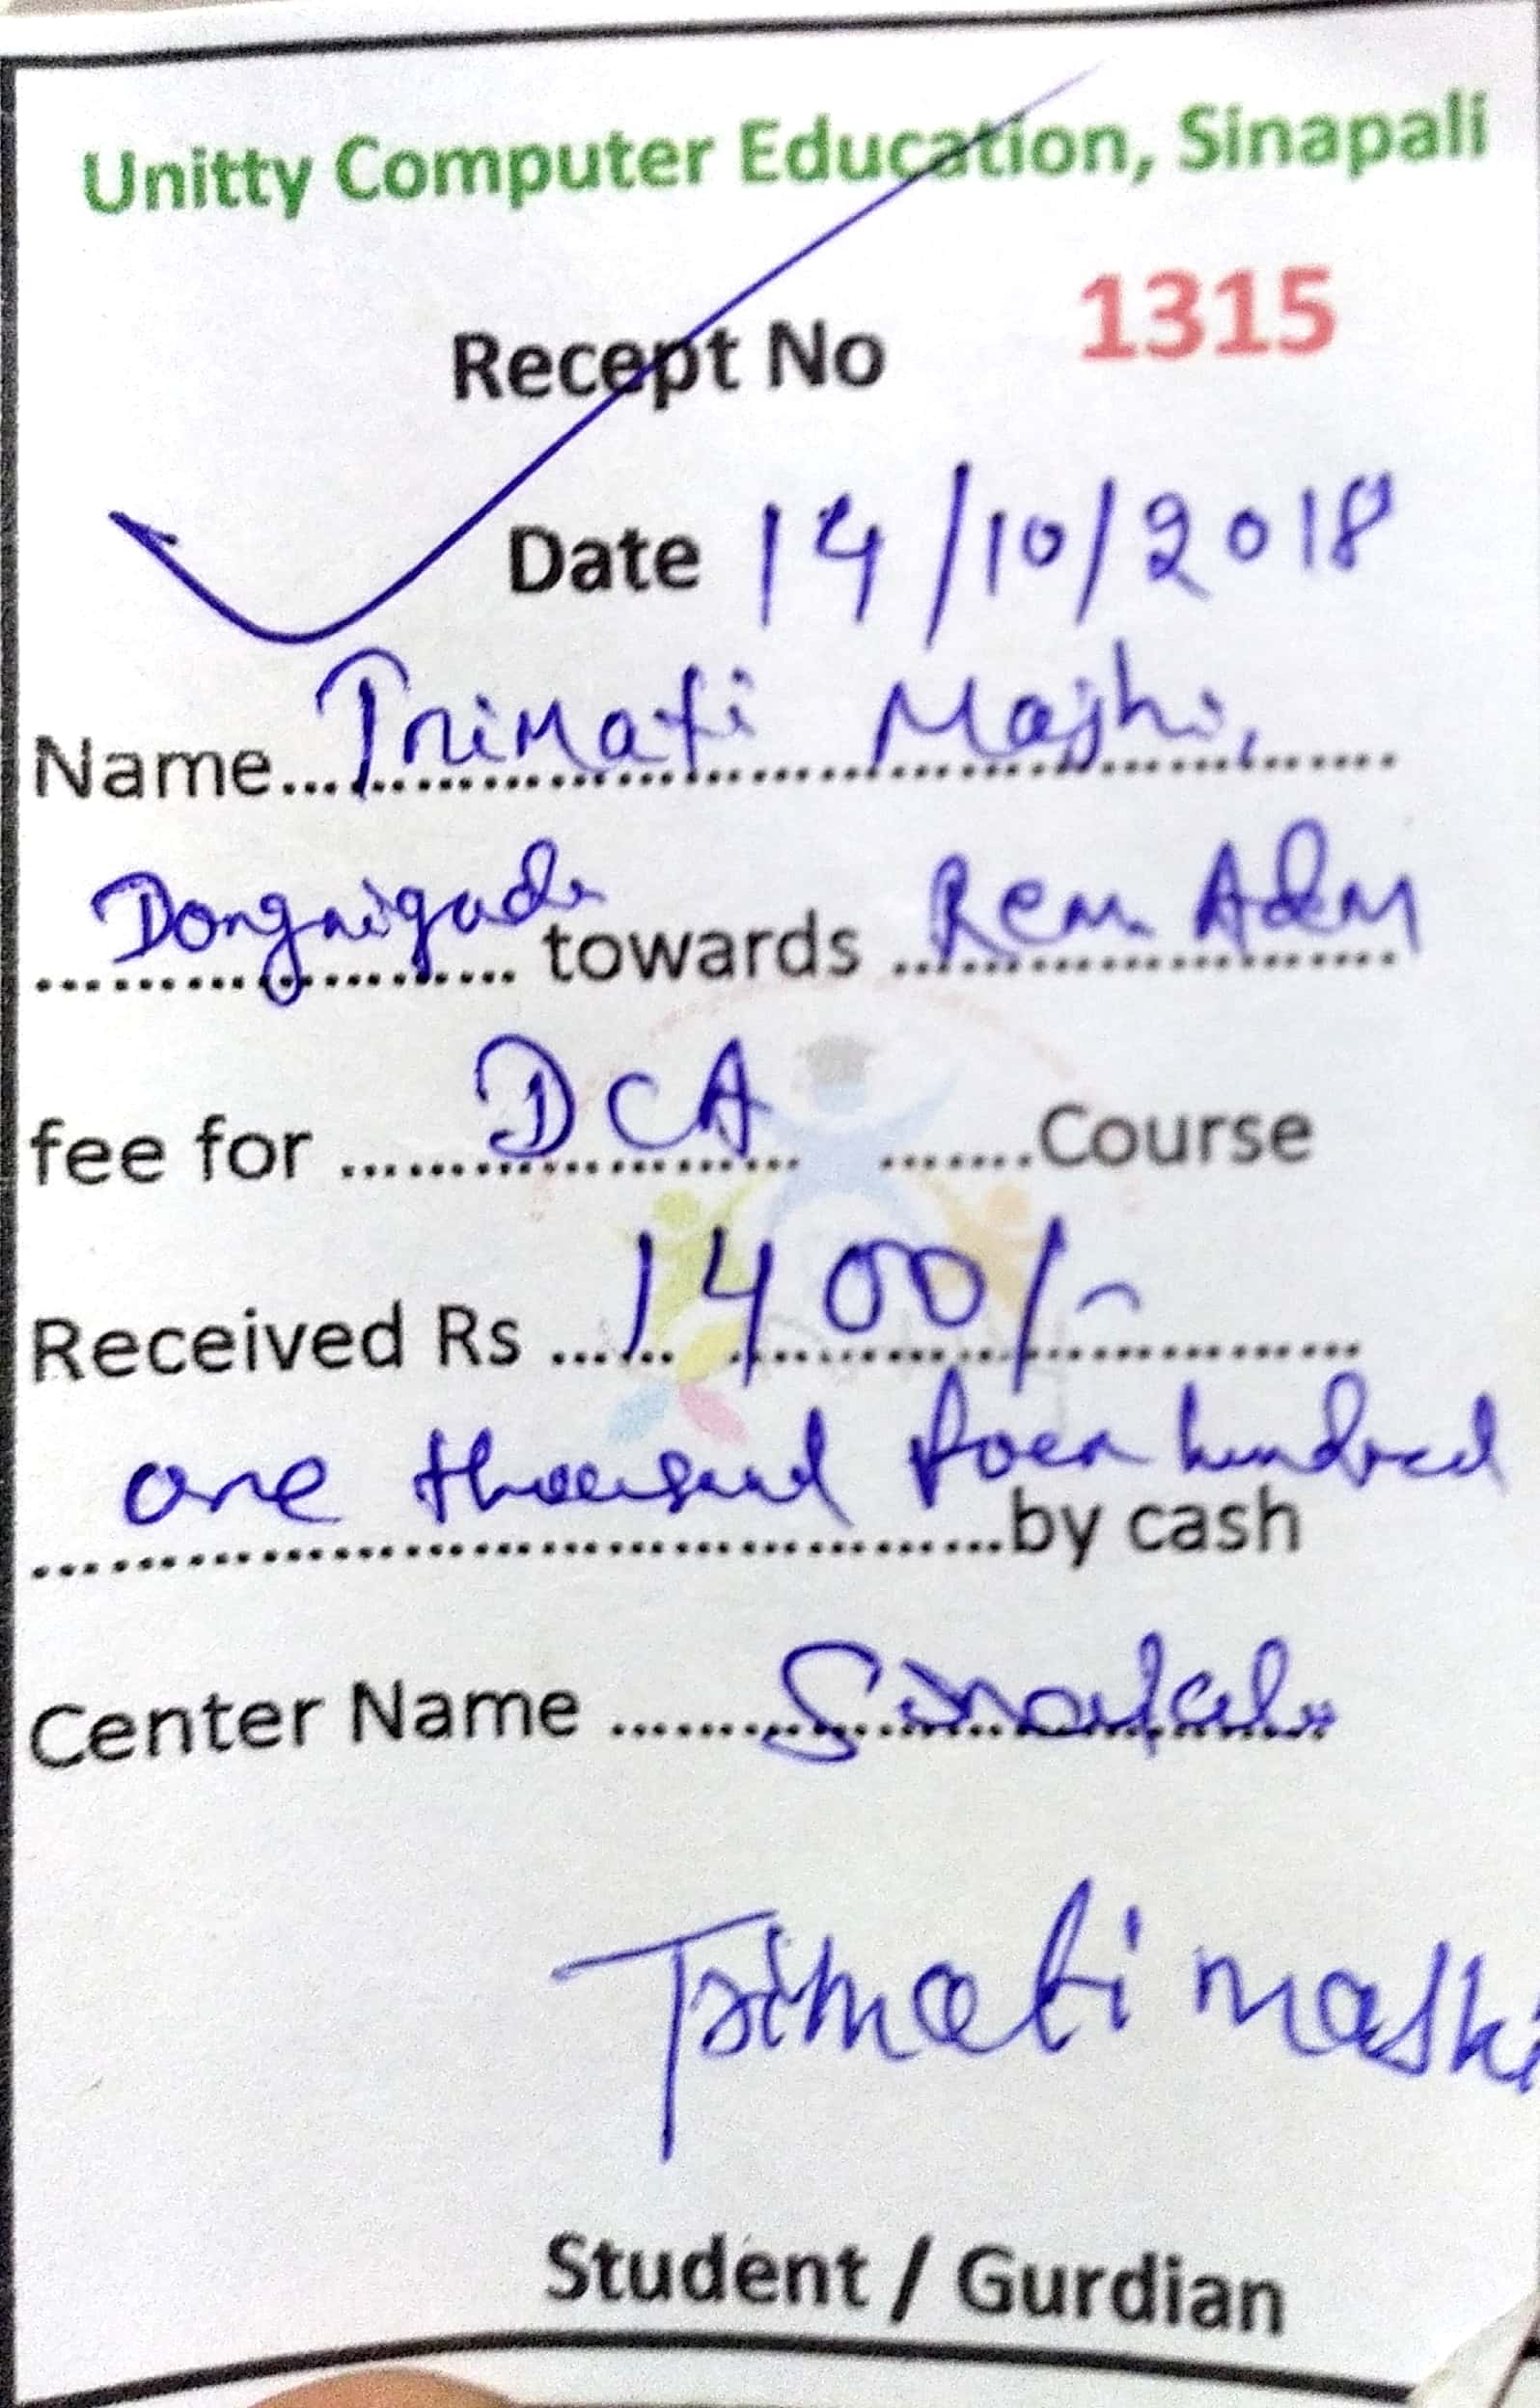 Unitty Computer Education, Sinapali
Recept No 1315
Date 14/10/2018
Name Trimati Majhi,
towards Rem Adm
fee for DCA Course
Received Rs 1400/-
one thousand four hundred
by cash
Center Name Sinapali
Trimati Majhi
Student / Gurdian